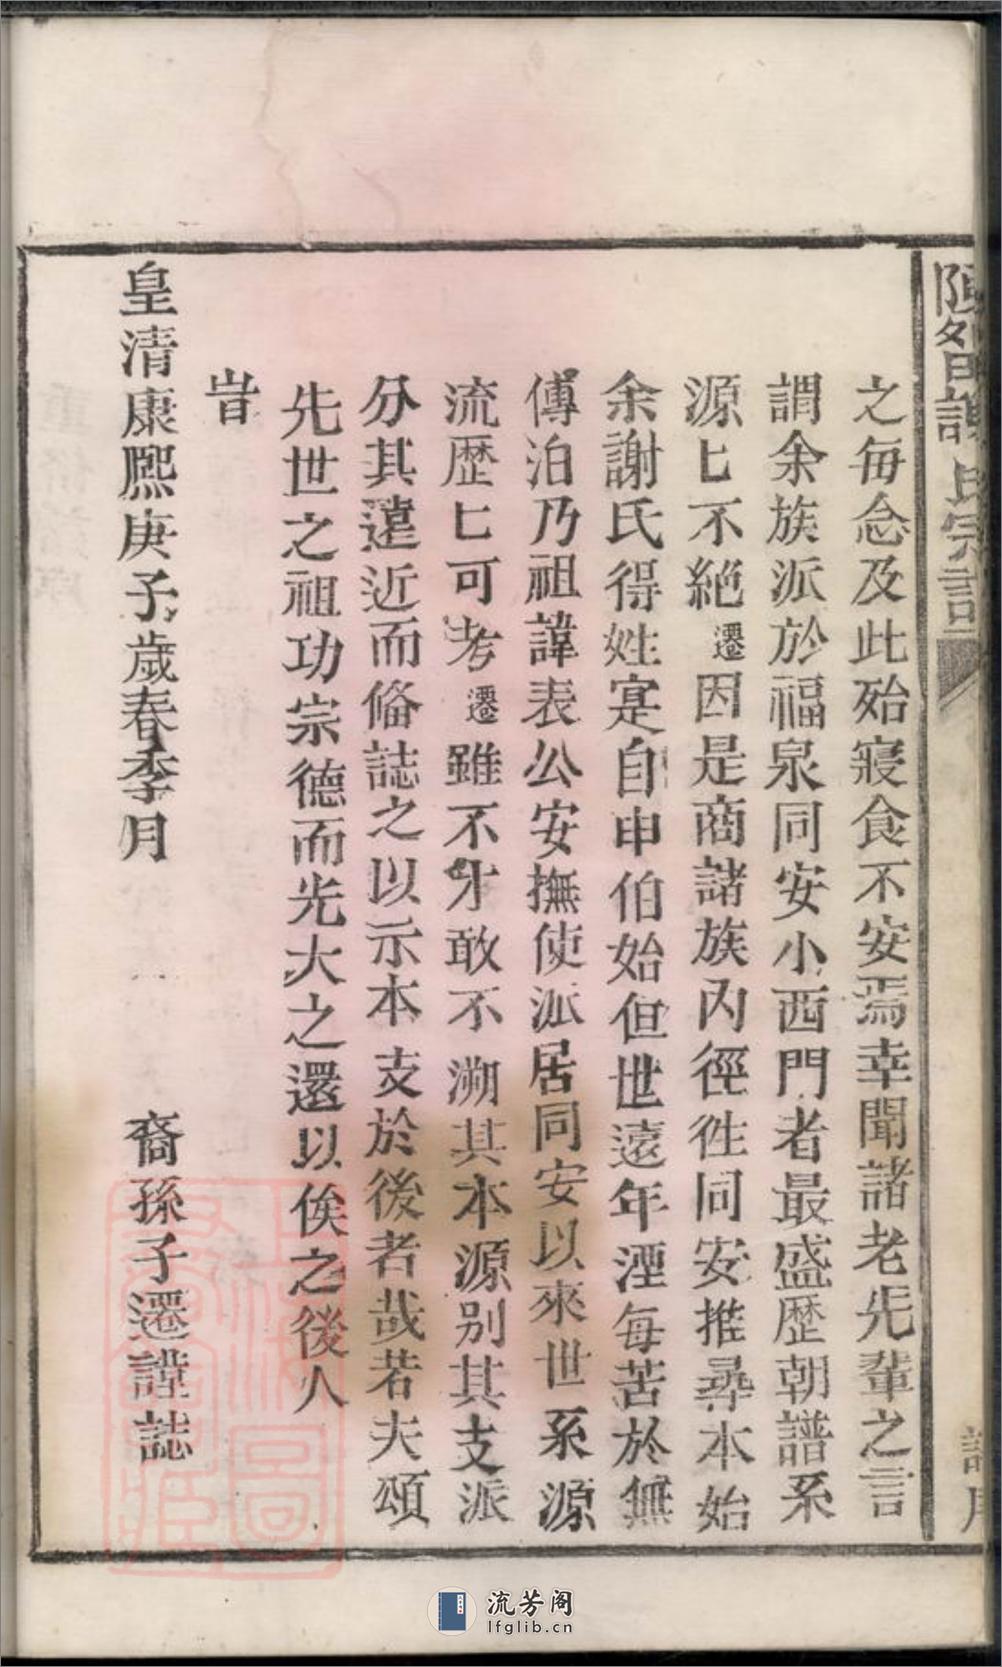 之每念及此殆寢食不安焉幸聞諸老先輩之言
謂余族派於福泉同安小西門者最盛歷朝譜系
源匕不絕遷因是商諸族內徑徃同安推尋本始
余謝氏得姓寔自申伯始但世遠年湮每苦於無
傳泊乃祖諱表公安撫使派居同安以來世系源
流歷匕可考遷雖不才敢不溯其本源別其支派
分其遠近而俻誌之以示本支於後者哉若夫頌
先世之祖功宗德而光大之還以俟之後人
旹
皇清康熙庚子歲春季月 裔孫子遷謹誌
流芳阁
lfglib.cn